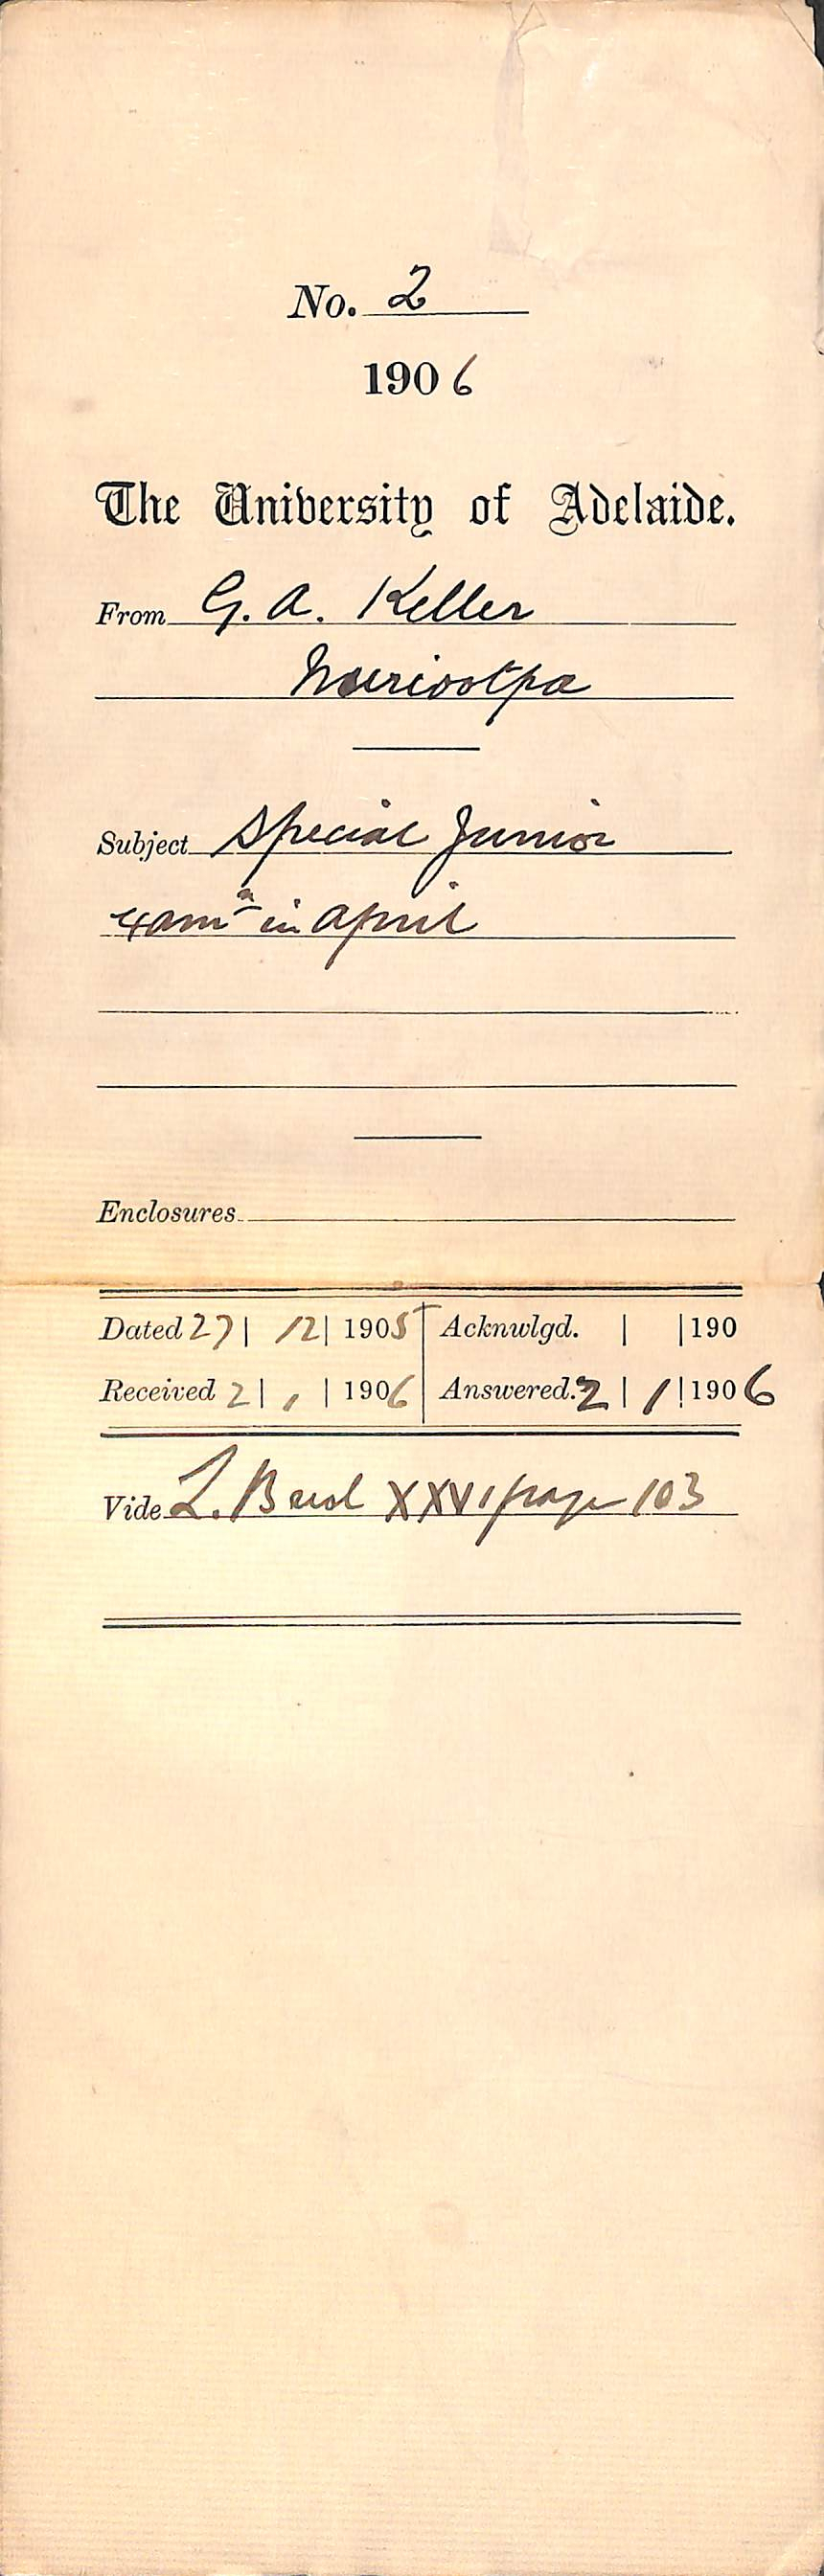 No. 2
1906
The University of Adelaide.
From G. A. Keller
Nuriootpa
Subject Special Junior
exam n in April
Enclosures
Dated 27 | 12 | 1905 Acknwlgd. | | 190
Received 2 | 1 | 1906 Answered. 2 | 1 | 1906
Vide L. Book XXVI page 103